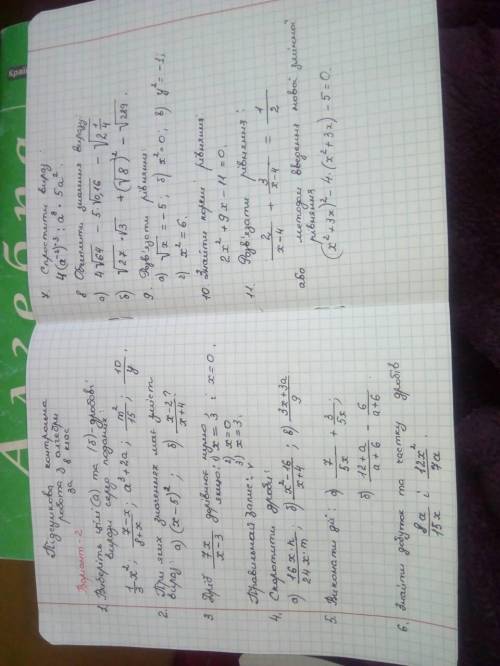 Алгебра
Підсумкова контрольна
робота з алгебри
за 8 клас
Варіант-2
1. Виберіть цілі (а) та (б)-дробові
вирази серед поданих:
1/3 x²; 7-x/8+x; a³+2a; m²/15; 10/y
2. При яких значеннях має зміст
вираз: а) (x-5)²; б) x-2/x+4?
3 Дріб 7x/x-3 дорівнює нулю
якщо: 1) x=3 і x=0
2) x=0
3) x=3.
Правильний запис:
4. Скоротити дроби:
а) 16x·n/24x·m; б) x²-16/x+4; в) 3x+3a/9
5. Виконати дії: а) 7/5x + 3/5x;
б) 12+a/a+6 - 6/a+6
6. Знайти добуток та частку дробів
8a/15x і 12x²/7a
7. Спростити вираз
4(a⁻⁴)⁻³ : a⁸ · 5a²
8 Обчислити значення виразу:
а) 4√64 - 5·√0,16 - √2 1/4
б) √27 · √3 + (√8)² - √289.
9. Розв'язати рівняння:
а) √x = -5; б) x²=0; в) y²=-1;
г) x²=6.
10 Знайти корені рівняння
2x²+9x-11=0.
11. Розв'язати рівняння:
2/x-4 + 3/x-4 = 1/2
або методом введення нової змінної
рівняння
(x²+3x)²-4·(x²+3x)-5=0.